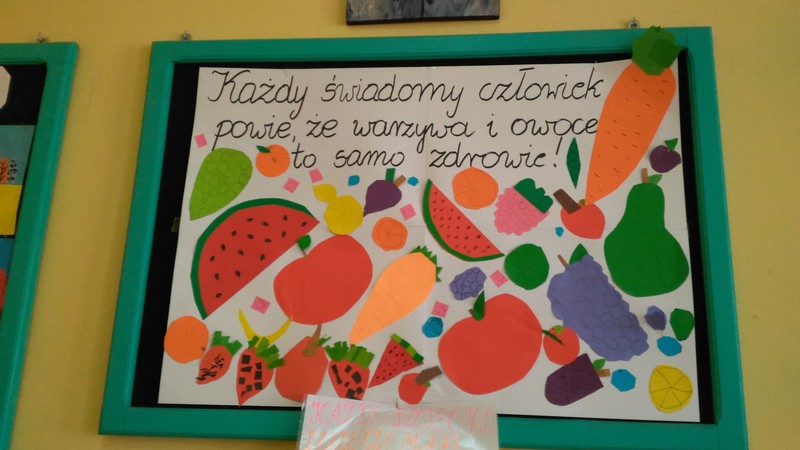 Każdy świadomy człowiek
powie, że warzywa i owoce
to samo zdrowie!